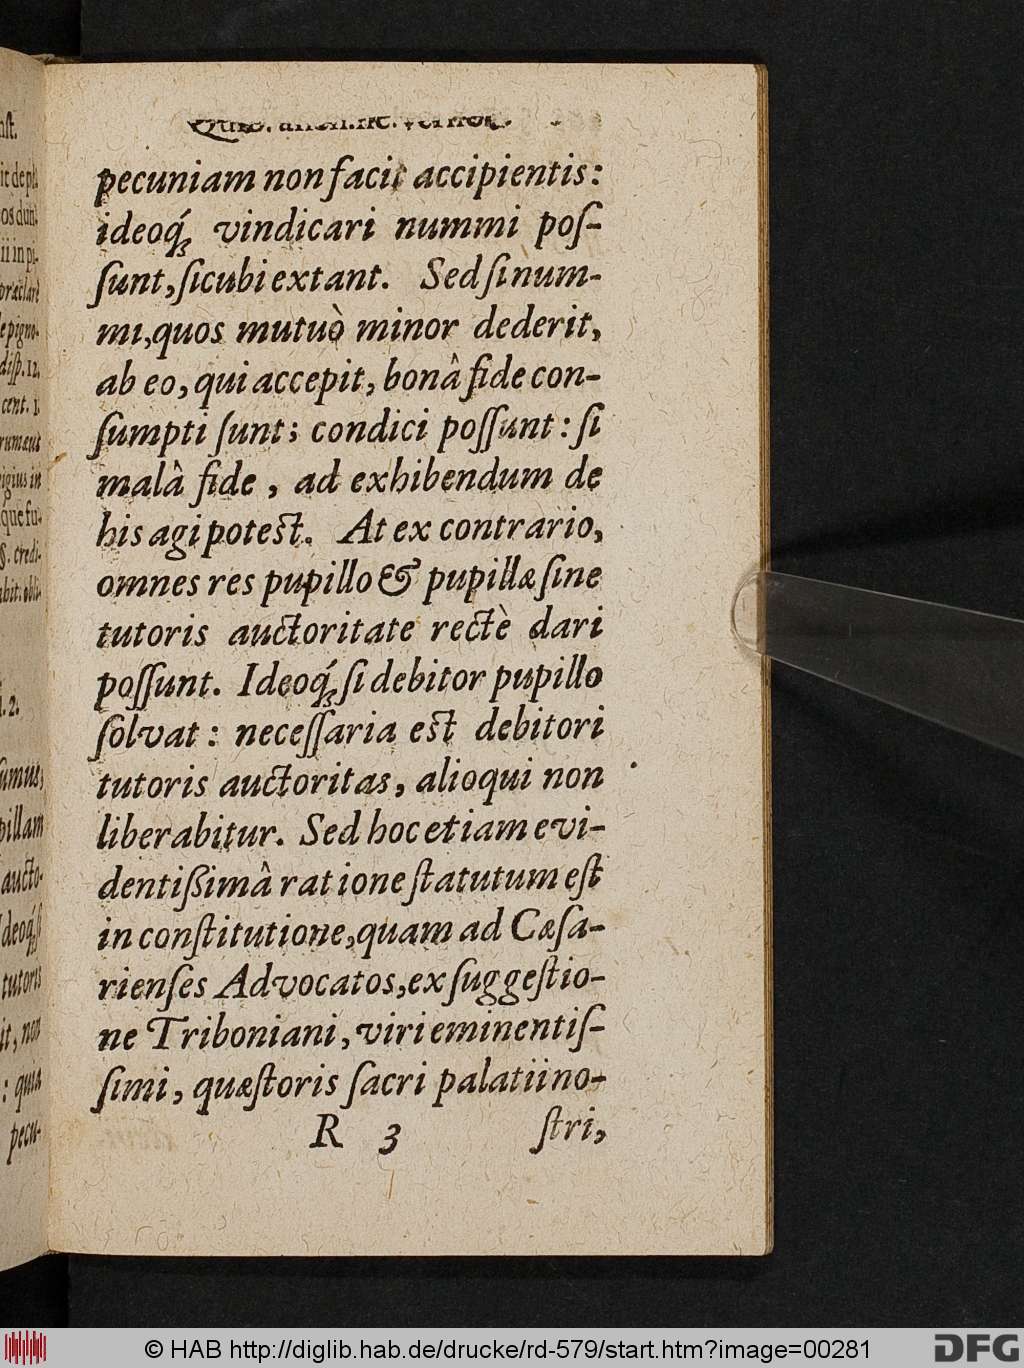 pecuniam non facit accipientis:
ideoq́; vindicari nummi poſ-
ſunt, ſicubi extant. Sed ſi num-
mi, quos mutuò minor dederit,
ab eo, qui accepit, bonâ fide con-
ſumpti ſunt; condici poſſunt: ſi
malâ fide, ad exhibendum de
his agi poteſt. At ex contrario,
omnes res pupillo & pupillæ ſine
tutoris auctoritate rectè dari
poſſunt. Ideoq́; ſi debitor pupillo
ſolvat: neceſſaria eſt debitori
tutoris auctoritas, alioqui non
liberabitur. Sed hoc etiam evi-
dentiſſimâ ratione ſtatutum eſt
in conſtitutione, quam ad Cæſa-
rienſes Advocatos, ex ſuggeſtio-
ne Triboniani, viri eminentiſ-
ſimi, quæſtoris ſacri palatii no-
R 3 ſtri,
© HAB http://diglib.hab.de/drucke/rd-579/start.htm?image=00281
DFG